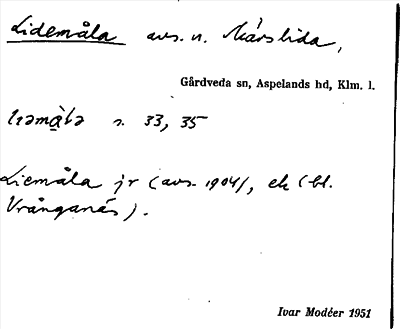 Lidemåla avs. n. Mårslida,
Gårdveda sn, Aspelands hd, Klm. l.
s. 33, 35
Liemåla jr (avs. 1904), ek (bl.
Vrånganäs).
Ivar Modéer 1951